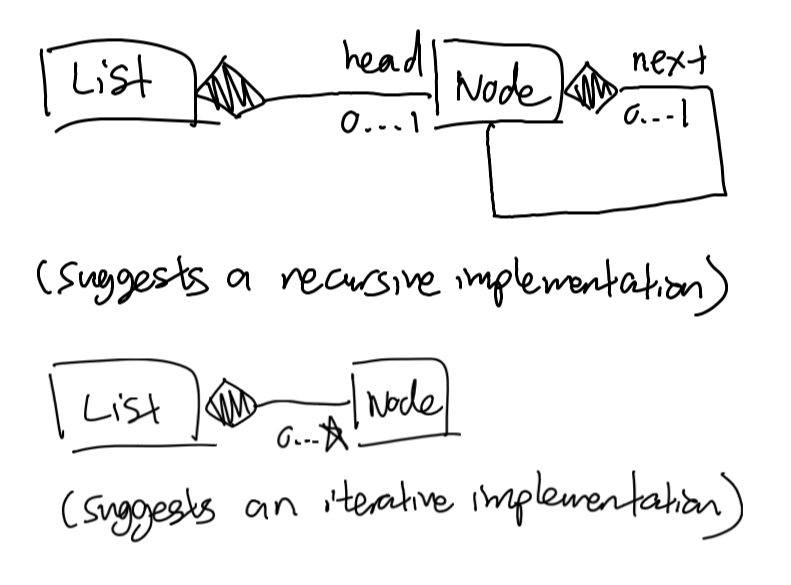 List head Node next
0...1 0...1
(suggests a recursive implementation)
List Node
0...*
(suggests an iterative implementation)